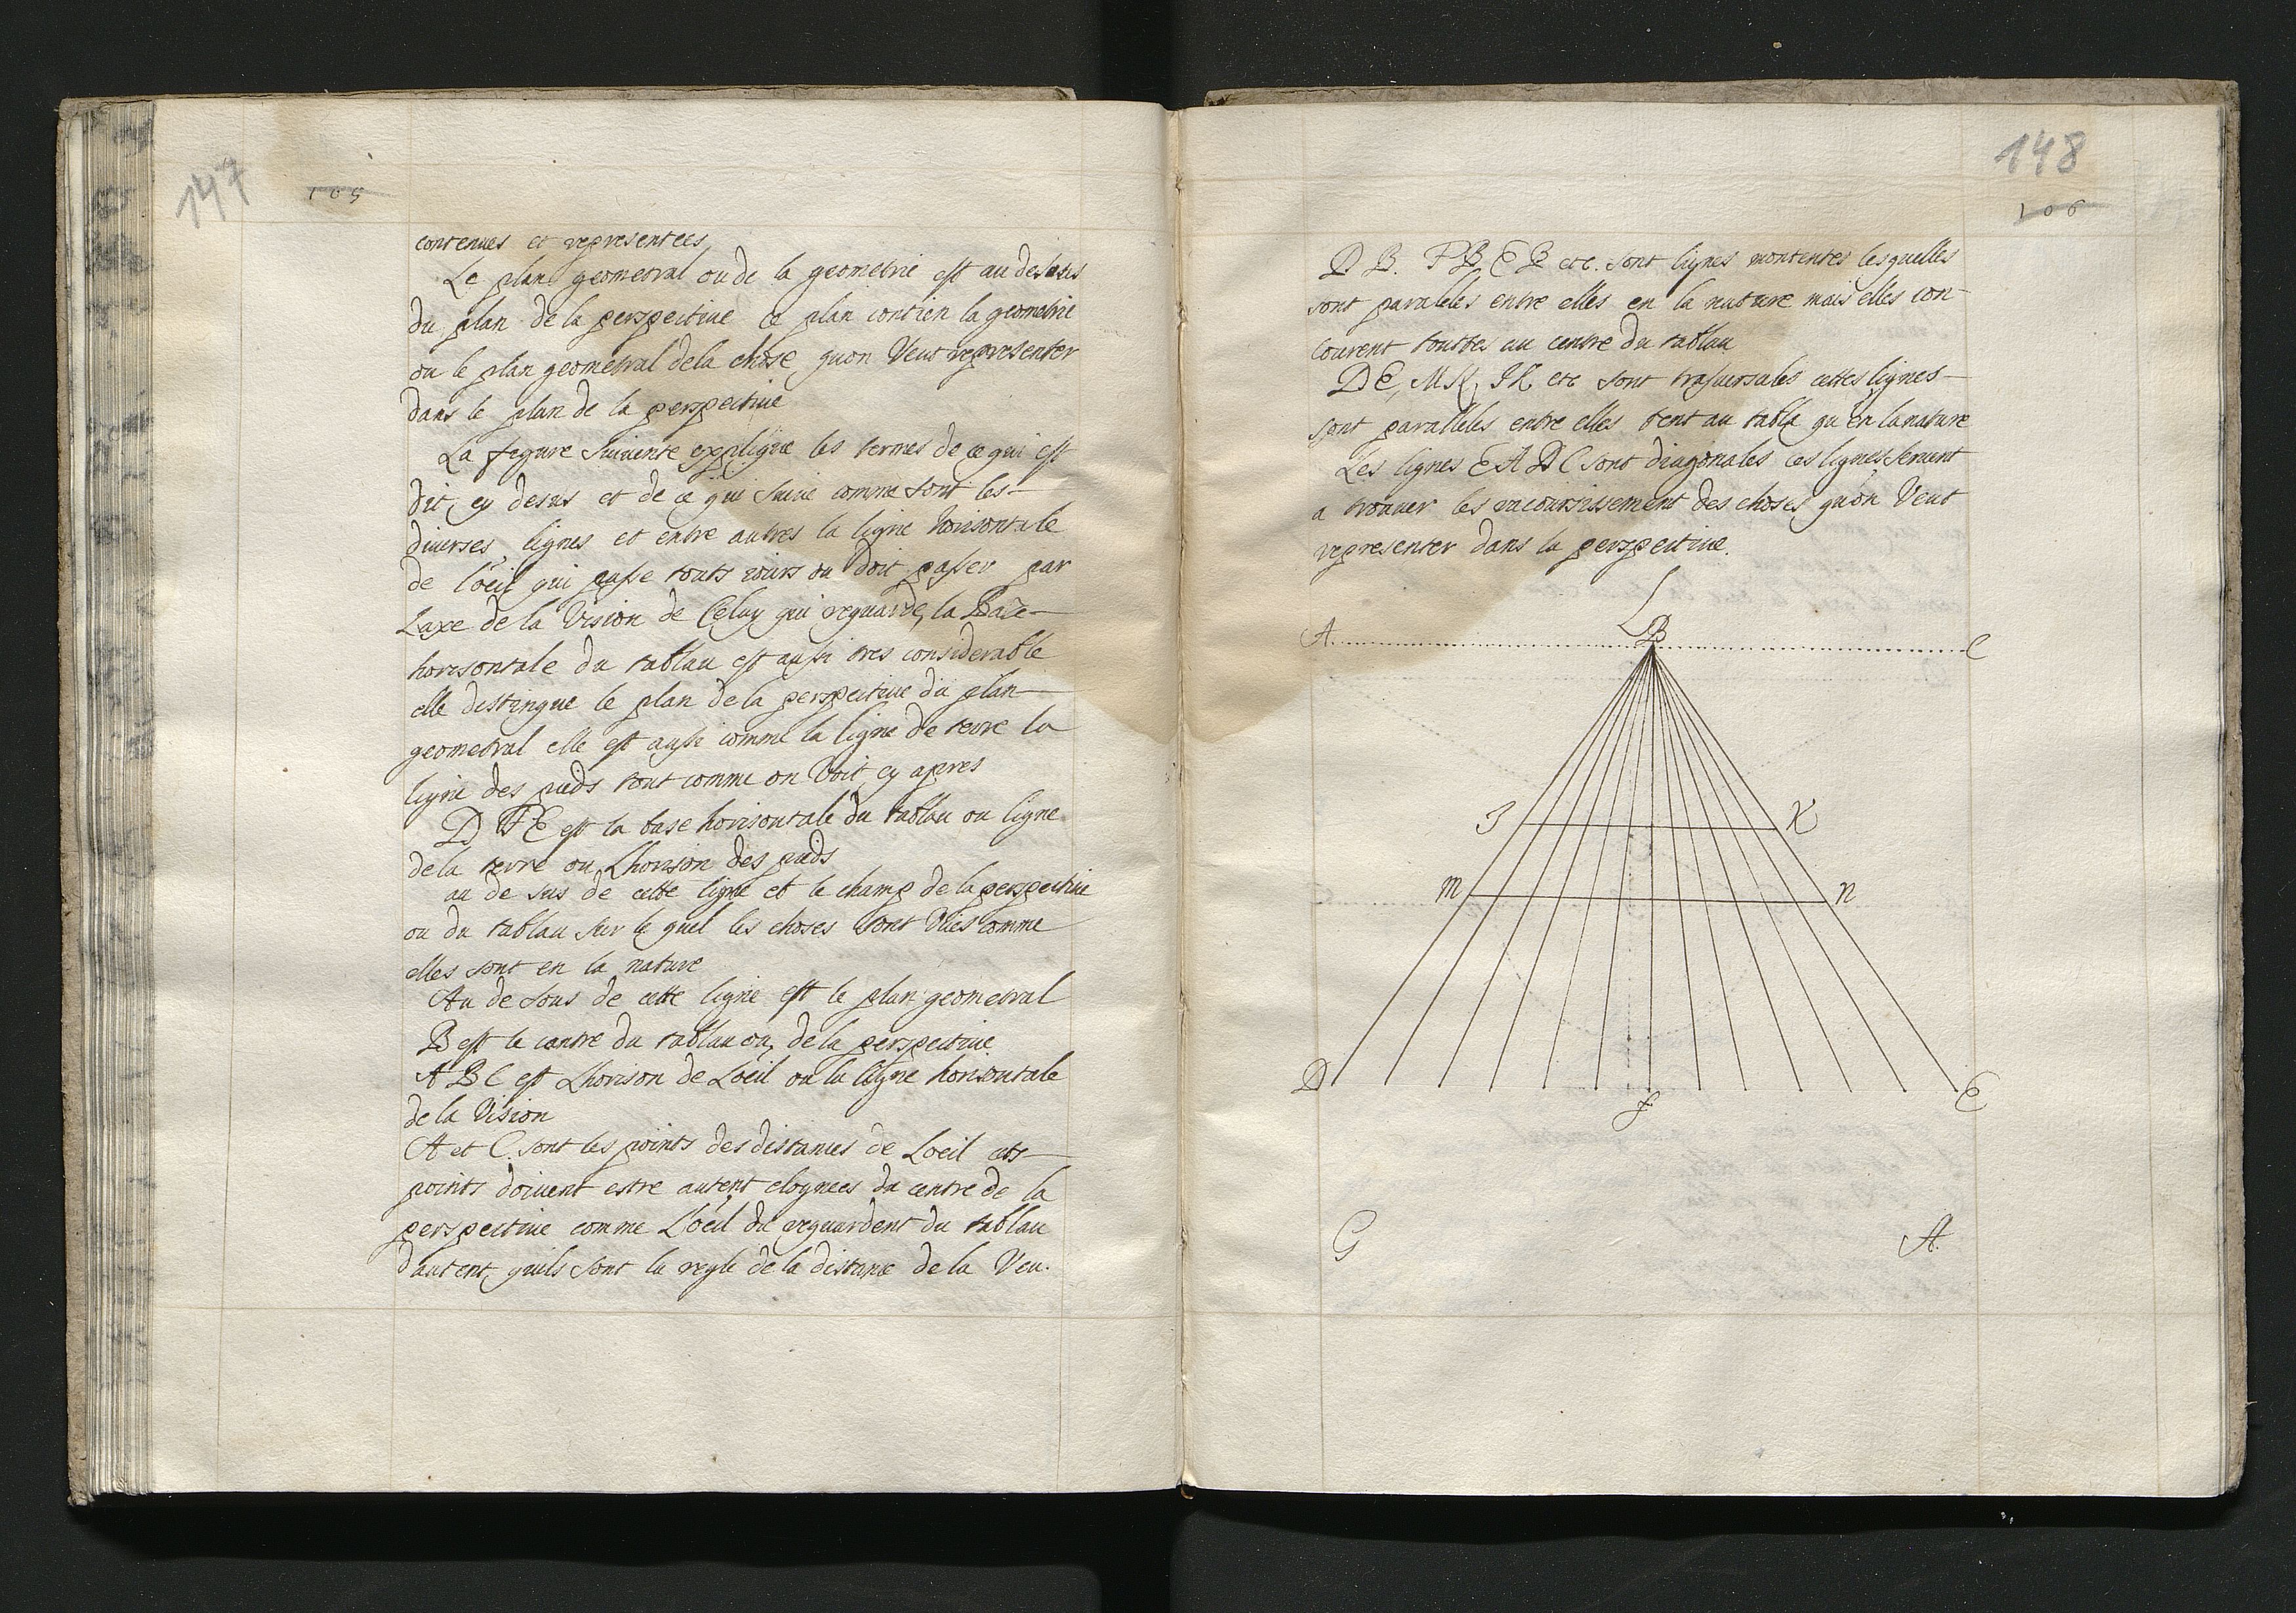 147
105
contenues et representees
Le plan geometral ou de la geometrie est au desous
du plan de la perspective ce plan contien la geometrie
ou le plan geometral dela chose quon Veut representer
dans le plan de la perspective
La fegure suivente explique les termes de ce qui est
dit cy desus et de ce qui suive comme sont les
diverses lignes et entre autres la ligne horisontale
de l'oeil qui passe touts iours ou doit passer par
Laxe de la Vision de Celuy qui reguarde, la Base
horisontale du tablau est aussi tres considerable
elle destingue le plan dela perspective du plan
geometral elle est aussi comme la ligne de terre la
ligne des pieds tout comme on Voit cy apres
D F E est la base horisontale du tablau ou ligne
dela terre ou Lhorison des pieds
au de sus de cette ligne et le champ de la perspective
ou du tablau sur le quel les choses sont Vües comme
elles sont en la nature
Au de sous de cette ligne est le plan geometral
B est le centre du tablau ou, de la perspective
A B C est Lhorison de Loeil ou la ligne horisontale
de la Vision
A et C. sont les points des distances de Loeil cets
points doivent estre autent elognees du centre de la
perspective comme L'oeil du reguardent du tablau
d'autent quils sont la regle de la distance de la Veu.
148
106
D B. F B, E B etc. sont lignes montentes lesquelles
sont paraleles entre elles en la nature mais elles con
courent touttes au centre du tablau
D E, M N, I K etc sont trasversales cettes lignes
sont paralleles entre elles tent au tabla qu'en la nature
Les lignes E A D C sont diagonales ces lignes servent
a trouver les racoursissement des choses qu'on Veut
representer dans la perspective.
L
A B C
I K
m n
D f E
G A.